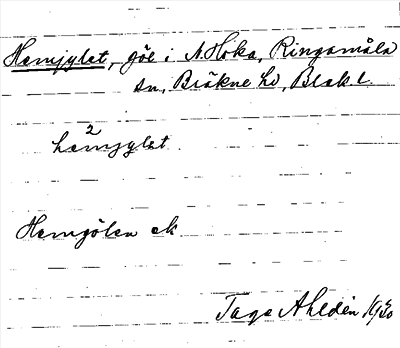 Hemjylet, göl i N. Hoka, Ringamåla
sn, Bräkne hd, Blek l.
2
hemjylət
Hemgölen ek
Tage Ahldén 1930